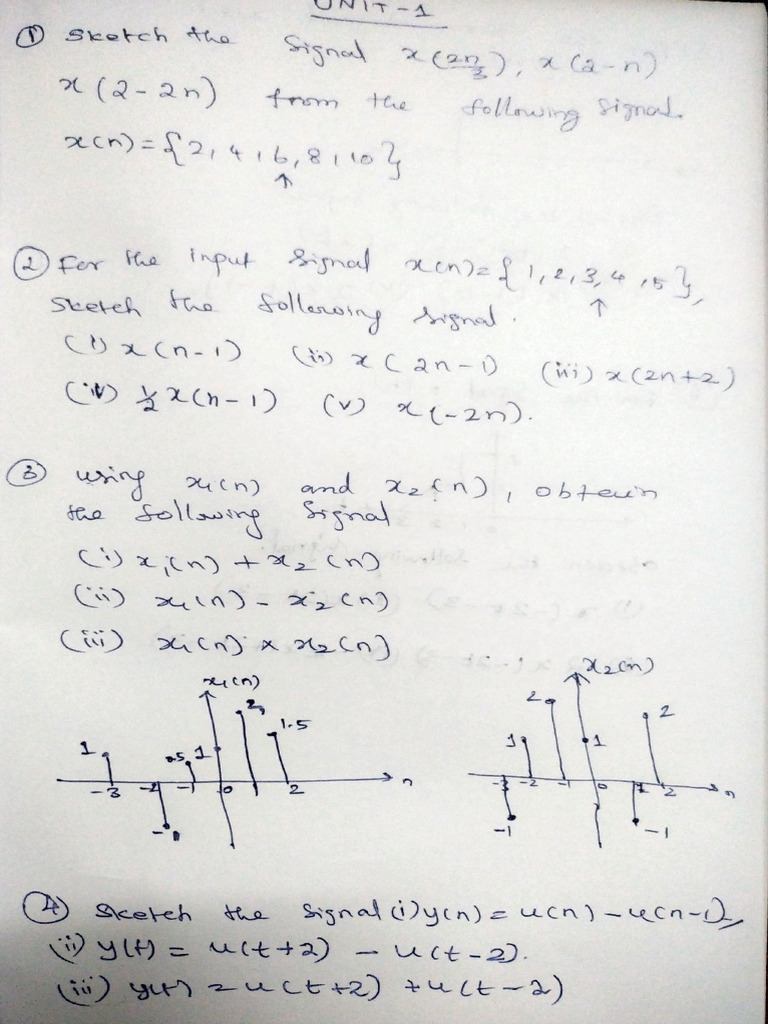 UNIT-1
① Sketch the Signal x(2n/3), x(2-n)
x(2-2n) from the following Signal.
x(n)={2,4,6,8,10}
↑
② For the input Signal x(n)={1,2,3,4,5},
↑
Sketch the following signal.
(i) x(n-1) (ii) x(2n-1) (iii) x(2n+2)
(iv) ½x(n-1) (v) x(-2n).
③ using x1(n) and x2(n), obtain
the following Signal
(i) x1(n) + x2(n)
(ii) x1(n) - x2(n)
(iii) x1(n) x x2(n)
x1(n)
1 -3 -2 .5 -1 1 0 2 1 1.5 2 n
x2(n)
-3 -1 1 -2 2 -1 1 0 1 -1 2 2 n
④ Sketch the Signal (i) y(n) = u(n) - u(n-1),
(ii) y(t) = u(t+2) - u(t-2).
(iii) y(t) = u(t+2) + u(t-2)